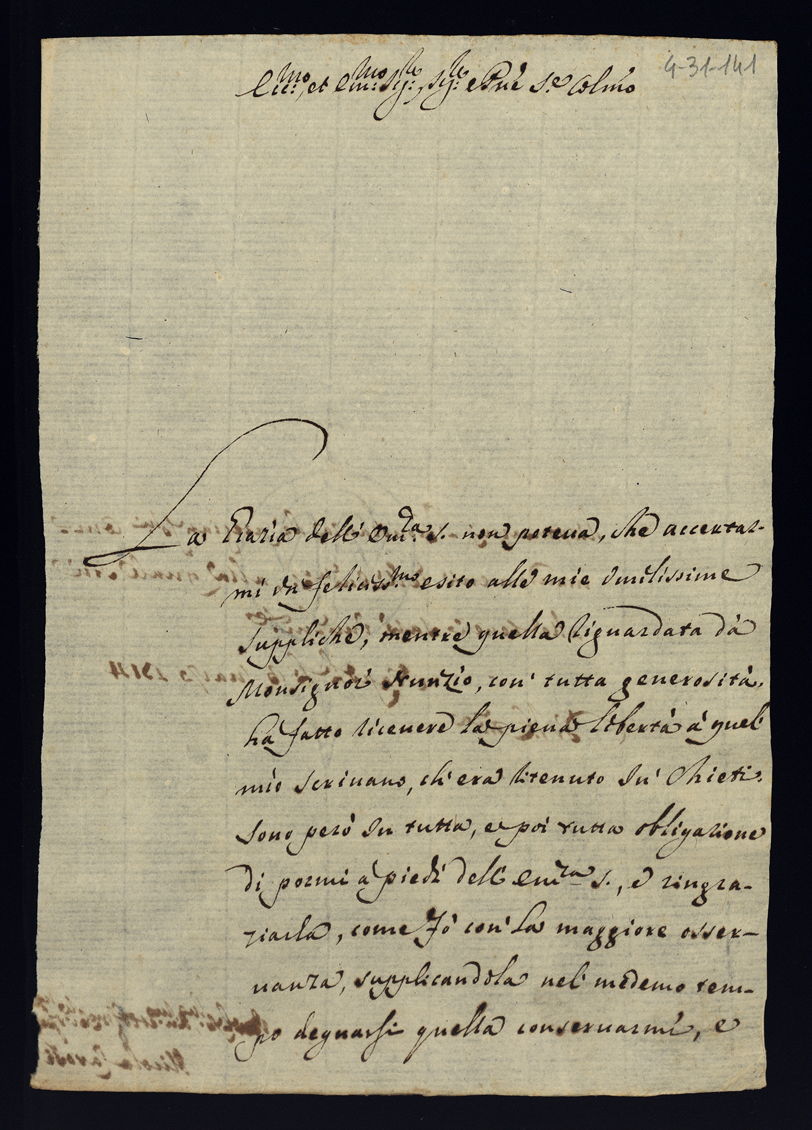 4-31-141
Ecc:mo, et Em:mo Sig:re, Sig:re e Pne S:e Colmo
La Grazia dell' Em:za S. non poteua, che accertar-
mi un felicis:mo esito alle mie umilissime
suppliche, mentre quella riguardata dà
Monsignor Nunzio, con' tutta generosità,
hà fatto riceuere la piena libertà à quel
mio scriuano, ch' era ritenuto in' Chieti.
Sono però in tutta, e poi tutta obligazione
di pormi à piedi dell' Em:za S., e ringra-
ziarla, come Jò con' la maggiore osser-
uanza, supplicandola nel' medemo tem-
po degnarsi quella conseruarmi, e